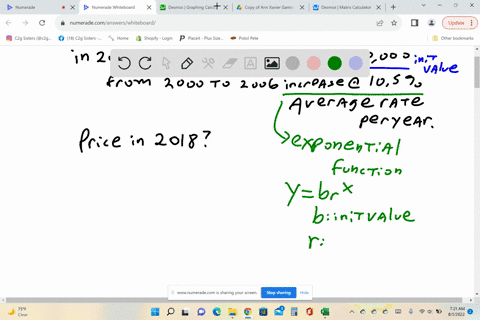 Numerade
Numerade Whiteboard
Desmos | Graphing Calcul
Copy of Ann Xavier Gantt
Desmos | Matrix Calculator
numerade.com/answers/whiteboard/
Update
C2g Sisters (@c2g
(19) C2g Sisters -
Home
Shopify - Login
Placeit - Plus Size
Pistol Pete
in 2
0,000 iniT
VALUE
from 2000 TO 2006 incrEASE @ 10.5%
AVERAGE RATE
per year.
Price in 2018?
exponenTiAl
function
Y=br^x
b: iniT VAlue
r:
www.numerade.com is sharing your screen.
Stop sharing
Hide
75°F
Clear
7:21 AM
8/1/2022